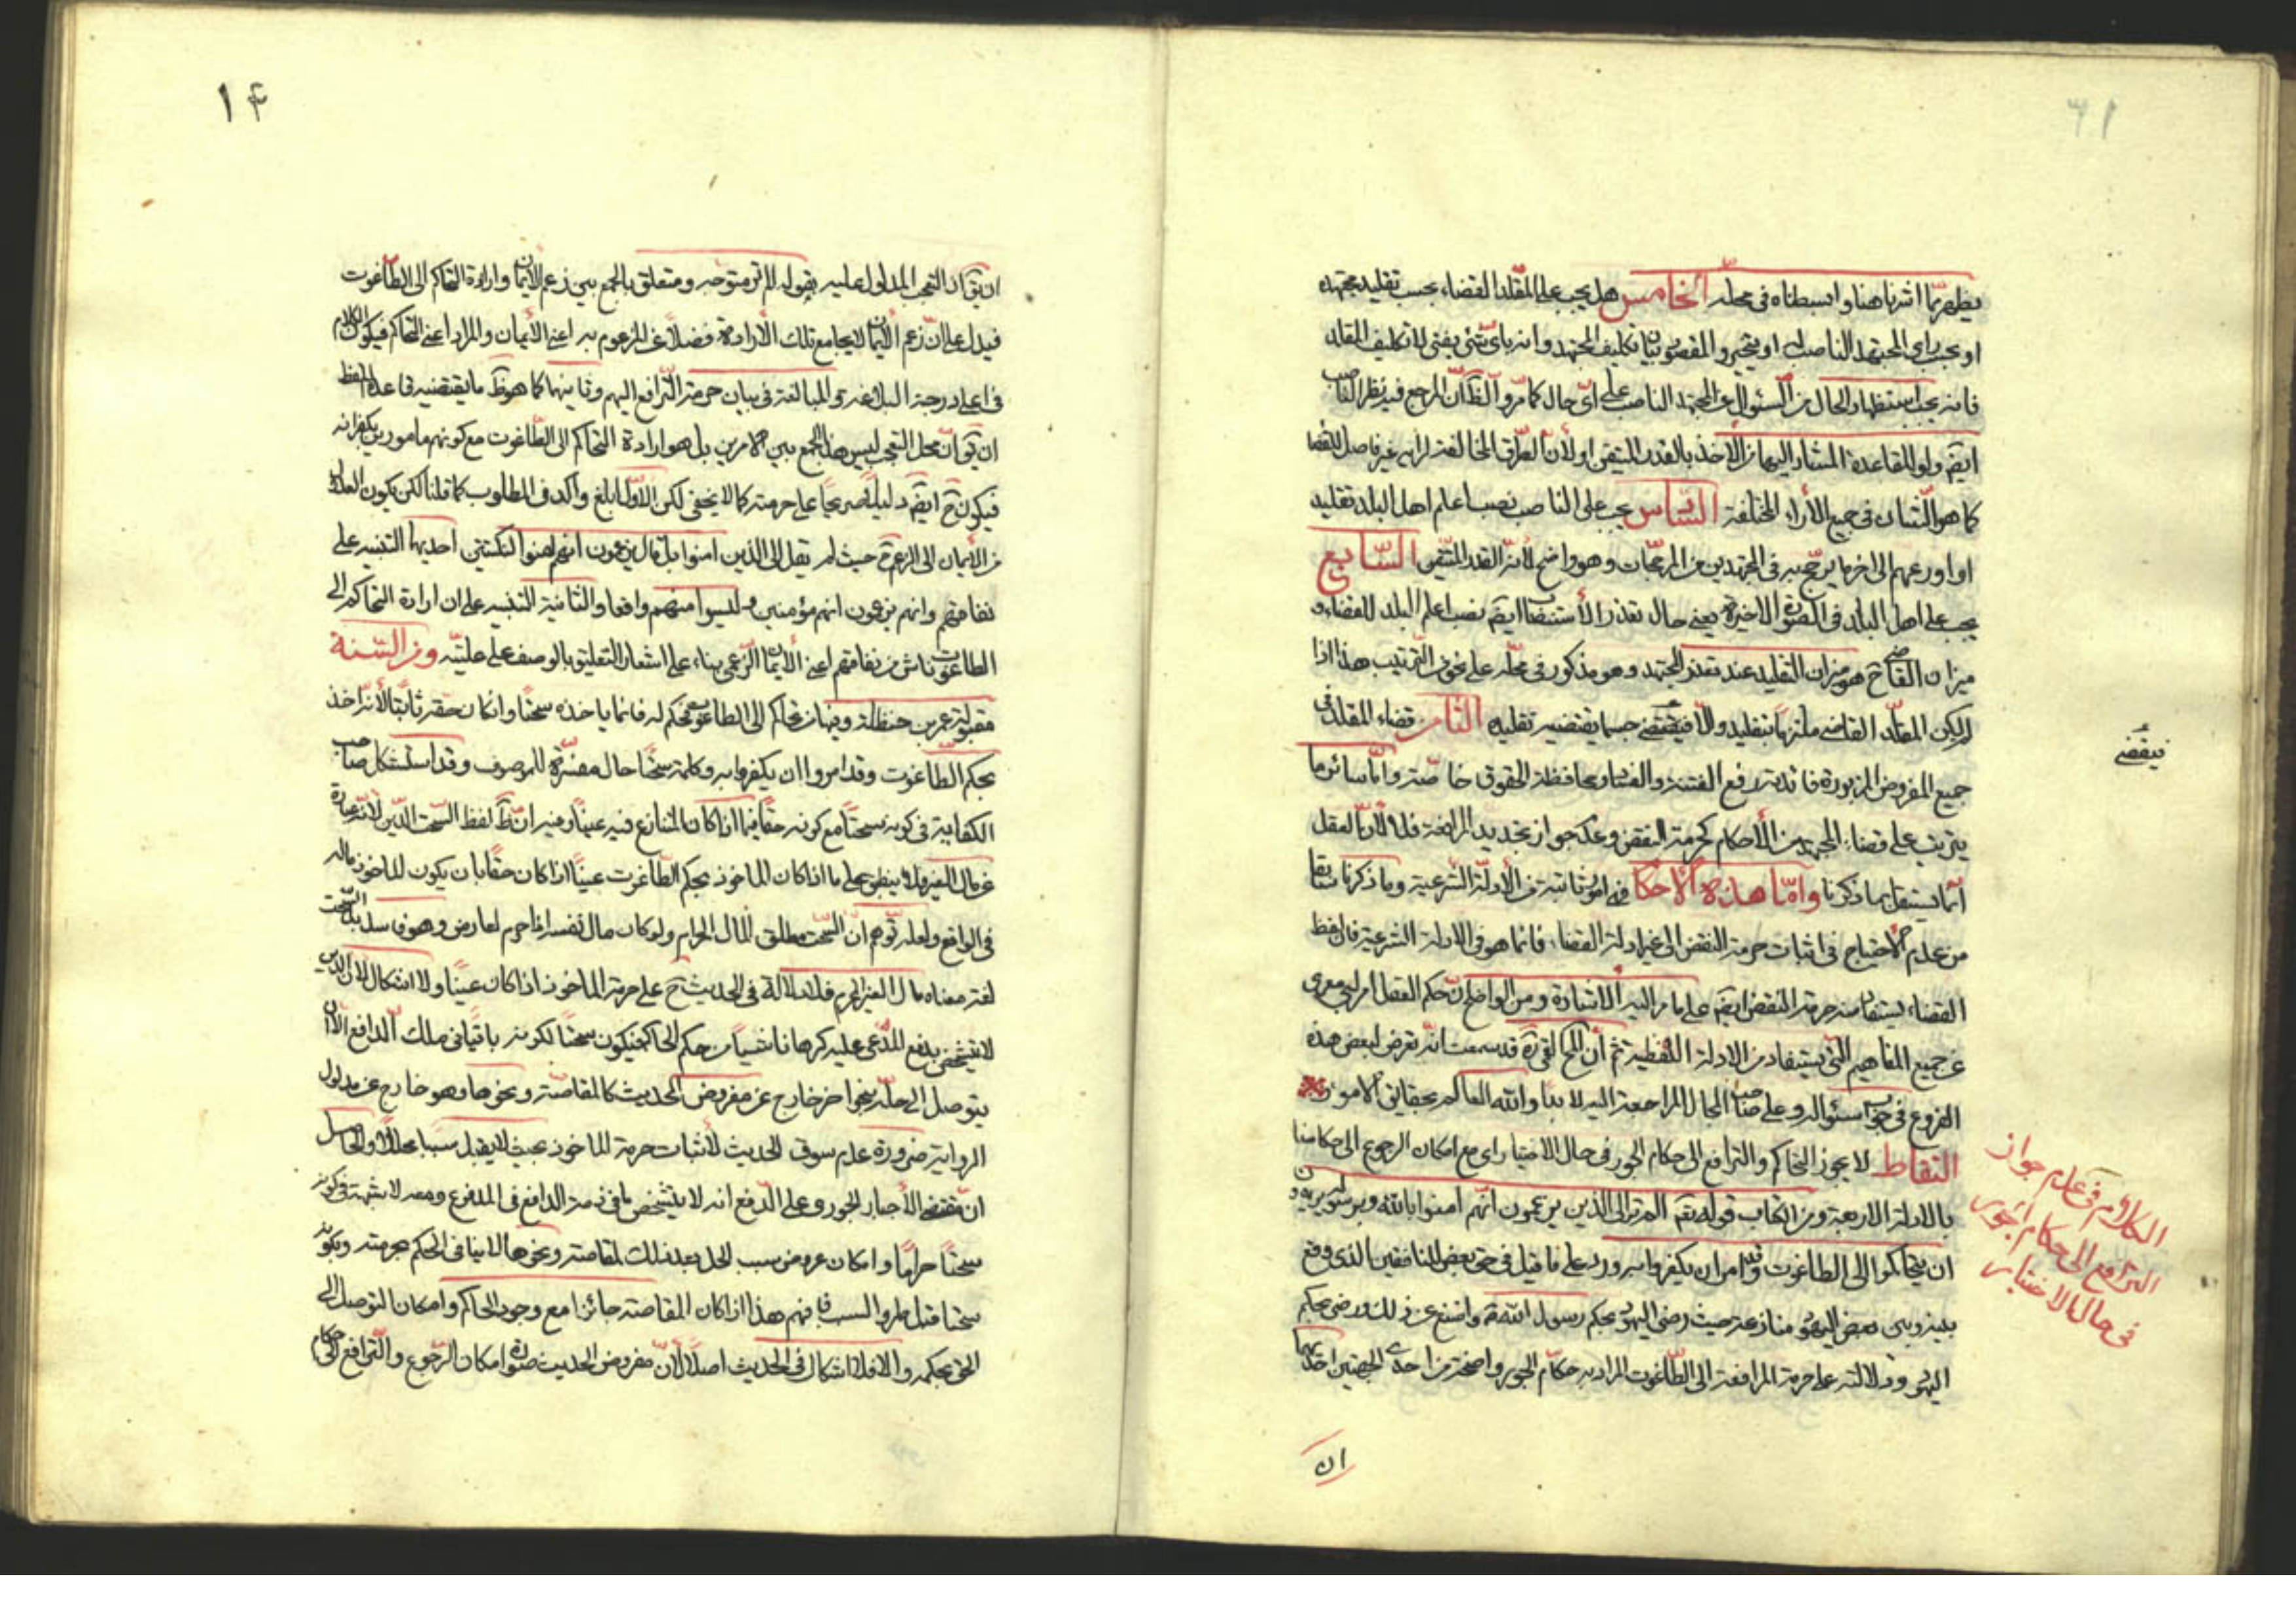 يظهر مما اشرنا هنا وابسطناه في محله الخامس هل يجب على المقلد القضاء بحسب تقليد مجتهده
او يجب راي المجتهد الناصب له او يتخير والمقصود بيان تكليف المجتهد وانه باى شئ يفتى لا تكليف المقلد
فانه يجب استظهار الحال من السئوال عن المجتهد الناصب على اى حال كما مر والظ ان المرجع فيه نظر الناصب
ايضم ولو للقاعدة المشار اليها من الاخذ بالقدر المتيقن او لان الطرق المخالفة لرايه غير فاصل للقضا
كما هو الشان في جميع الأراء المختلفة السادس يجب على الناصب نصب اعلم اهل البلد تقليد
او اورعهم الى اخر ما يرجح به في المجتهدين من المرجحات وهو واضح لانه القدر المتيقن السابع
يجب على اهل البلد في الصورة الاخيرة يعني حال تعذر الأستنصاب ايضم نصب اعلم البلد للقضاء و
ميزان القاضى ح هو ميزان التقليد عند تعذر المجتهد وهو مذكور في محله على نحو الترتيب هذا اذا
لم يكن المقلد القاضى ملتزما بتقليد والا فيقضى حسبما يقتضيه تقليده الثامن قضاء المقلد في
جميع الفروض المزبورة فائدته رفع الفتنة والفساد ومحافظة الحقوق خاصة واما سائر ما
يترتب على قضاء المجتهد من الأحكام كحرمة النقض وعدم جواز تجديد المرافعة فلا لان العقل
انما يستقل بما ذكرنا واما هذه الاحكام فهى امور ثابتة من الأدلة الشرعية وما ذكرنا سابقا
من عدم الاحتياج في اثبات حرمة النقض الى غير ادلة القضاء فانما هو في الادلة الشرعية فان لفظ
القضاء يستفاد منه حرمة النقض ايضم على ما مر اليه الاشارة ومن الواضح ان حكم العقل امر لبي معرى
عن جميع المفاهيم التي يستفاد من الادلة اللفظية ثم ان المحقق القمى ره قد سمعت انه تعرض لبعض هذه
الفروع في جواب سئواله وعلى صاحب المجال المراجعة اليه لا بد والله العالم بحقايق الامور
التقاط لا يجوز التحاكم والترافع الى حكام الجور في حال الاختيار اى مع امكان الرجوع الى حكامنا
بالادلة الاربعة ومن الكتاب قوله تعم الم تر الى الذين يزعمون انهم امنوا بالله وبرسوله يريدون
ان يتحاكموا الى الطاغوت وقد امروا ان يكفروا به ورد على ما قيل في حق بعض المنافقين الذى وقع
بينه وبين بعض اليهود منازعة حيث رضى اليهود بحكم رسول الله ص وامتنع عن ذلك ورضى بحكم
اليهود ودلالته على حرمة المرافعة الى الطاغوت المراد به حكام الجور واضحة من احدى الجهتين احديهما
ان
فيقضى
الكلام في عدم جواز
الترافع الى حكام الجور
في حال الاختيار
١۴
ان يق ان التعجب المدلول عليه بقوله الم تر متوجه ومتعلق بالجمع بين زعم الأيمان وارادة التحاكم الى الطاغوت
فيدل على ان زعم الأيمان لا يجامع تلك الأرادة فضلا عن المزعوم به اعنى الأيمان والمراد اعنى التحاكم فيكون الكلام
في اعلى درجة البلاغة والمبالغة في بيان حرمة الترافع اليهم وثانيهما كما هو ظ ما يقتضيه قاعدة اللفظ
ان يق ان محل التعجب ليس هذا الجمع بين الامرين بل هو ارادة التحاكم الى الطاغوت مع كونهم مامورين بكفرانه
فيكون ح ايضم دليلا صريحا على حرمته كما لا يخفى لكن الاول ابلغ واكد في المطلوب كما قلنا لكن يكون العدول
من الأيمان الى الزعم ح حيث لم يقل الى الذين امنوا بل قال يزعمون انهم امنوا لنكتتين احديهما التنبيه على
نفاقهم وانهم يزعمون انهم مؤمنين وليسوا منهم واقعا والثانية التنبيه على ان ارادة التحاكم الى
الطاغوت ناش من نفاقهم اعنى الأيمان الزعمى بناء على اشعار التعليق بالوصف على عليته ومن السنة
مقبولة عمر بن حنظلة وفيها من تحاكم الى الطاغوت فحكم له فانما ياخذه سحتا وان كان حقه ثابتا لأنه اخذ
بحكم الطاغوت وقد امروا ان يكفروا به وكلمة سحتا حال مفسرة للموصوف وقد استشكل صاحب
الكفاية في كونه سحتا مع كونه حقا فيما اذا كان المتنازع فيه عينا وفيه ان ظ لفظ السحت الدين لانه عبارة
عن مال الغير فلا ينطبق على ما اذا كان الماخوذ بحكم الطاغوت عينا اذا كان حقا بان يكون للماخوذ ماله
في الواقع ولعله توهم ان السحت مطلق المال الحرام ولو كان مال نفسه اذا حرم لعارض وهو فاسد بل السحت
لغة معناه مال الغير المحرم فلا دلالة في الحديث ح على حرمة الماخوذ اذا كان عينا ولا اشكال لان الدين
لا يتشخص بدفع المدعى عليه كرها ناشيا من حكم الحاكم فيكون سحتا لكونه باقيا في ملك الدافع الا ان
يتوصل الى حله بنحو اخر خارج عن مفروض الحديث كالمقاصة ونحوها وهو خارج عن مدلول
الرواية ضرورة عدم سوق الحديث لأثبات حرمة الماخوذ بحيث لا يقبل سببا محللا والحاصل
ان مقتضى الأجبار الجورى على الدفع انه لا يتشخص ما في ذمة الدافع في المدفوع ومعه لا شبهة في كونه
سحتا حراما وامكان عروض سبب الحل بعد ذلك لمقاصته ونحوها لا ينافى الحكم بحرمته وبكونه
سحتا قبل طرو السبب فافهم هذا اذا كان المقاصة جائزا مع وجود الحاكم وامكان التوصل الى
الحق بحكمه والا فلا اشكال في الحديث اصلا لأن مفروض الحديث صورة امكان الرجوع والترافع الى حكام